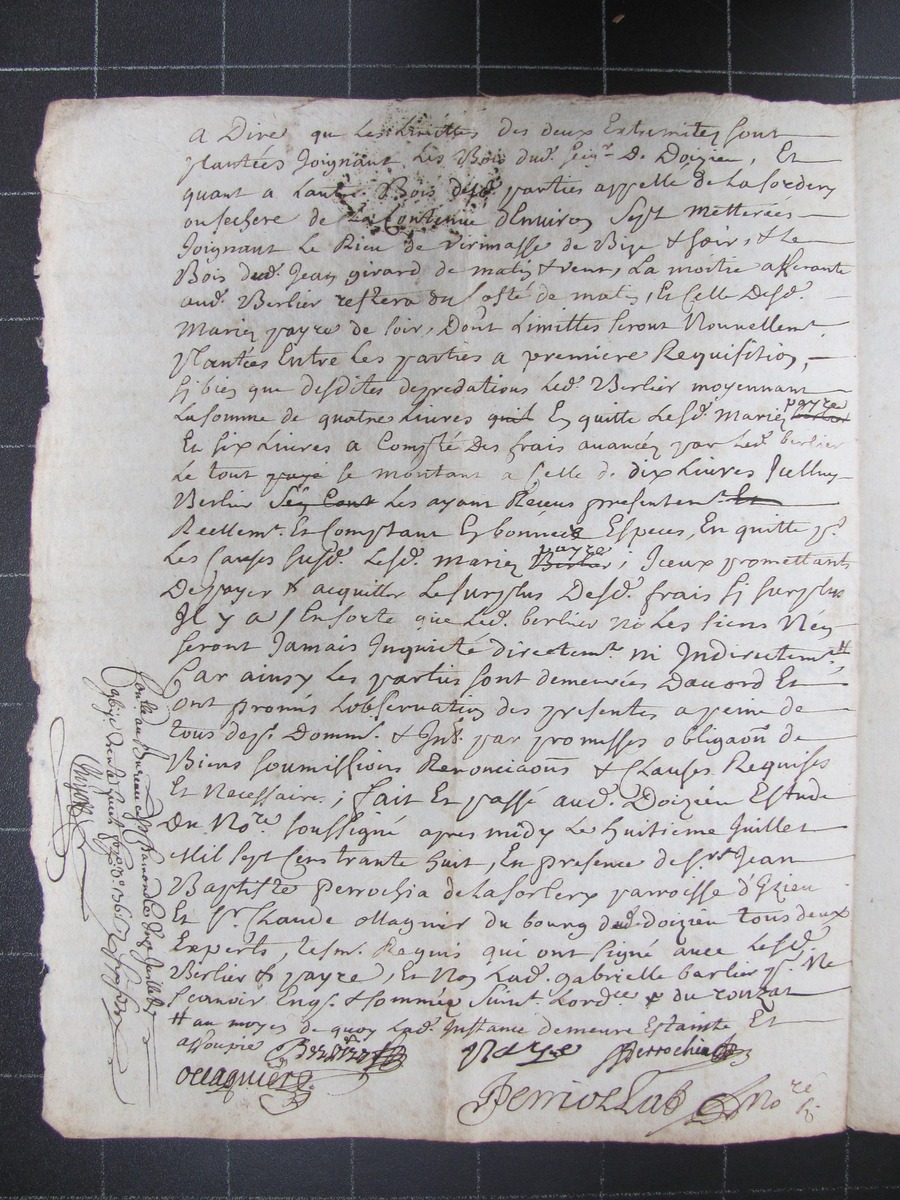 a Dire que Les Limittes des deux Extremites sont
plantées Joignant Les Bois dud. Seigr. De Doizieu, Et
quant a Lautre Bois desd. parties appellé de La
ou sechere de La Contenue d'Environ Sept Metterées
Joignant Le Rieu de Virimasse de Bize & soir, & Le
Bois dud. Jean girard de matin & vent, La moitié afferante
aud. Berlier restera du Costé de matin, Et Celle Desd.
Mariez payre de soir, Dont Limittes seront Nouvellemt.
plantées Entre Les parties a premiere Requisition,
si bien que desdites depredations Led. Berlier moyennant
La somme de quatre Livres quil En quitte Lesd. Mariez payre
Et six Livres a Compte Des frais avancez par Led. berlier
Le tout payé se montant a Celle de dix Livres Icelluy
Berlier Les ayant Reçeus presentemt. Et
Reellemt. Et Comptant En bonnes Especes, En quitte pr.
Les Causes susd. Lesd. mariez payre Berlier; Iceux promettant
De payer & acquitter Le surplus Desd. frais si surplus
Il y a / En sorte que Led. berlier ni Les siens N'en
seront Jamais Inquieté directemt. ni Indirectemt. #
Par ainsy Les parties sont demeurées Daccord Et
ont promis Lobservation des presentes a peine de
tous dep. Domm. & Int. par promesses obligaons de
Biens soumissions Renonciaons & Clauses Requises
Et Necessaires; fait Et passé aud. Doizieu Estude
Du Nore. soussigné apres midy Le huitieme Juillet
Mil sept Cens trante huit, En presence de sr. Jean
Baptiste Perrochia de La parroisse d'Izieu
Et Sr. Claude Ollagnier du bourg dud. doizieu tous deux
Experts, tesm. Requis qui ont signé avec Lesd.
Berlier & payre, Et Non Lad. gabrielle barlier pr. Ne
Scavoir Enq. & sommée suivt. Lordce
# au moyen de quoy Lad. Instance demeure Estainte Et
assoupie Berlier Payre Perrochia
Ollagnier
Nore
Conllé au Bureau de St. Chamond Le onze Juillet